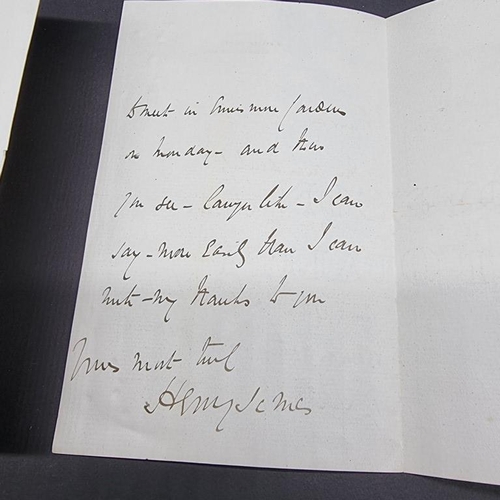 to meet in Ennismore Gardens
on Monday - and then
you see - lawyer like - I can
say - more easily than I can
write - my thanks to you
Yours most truly
Henry James